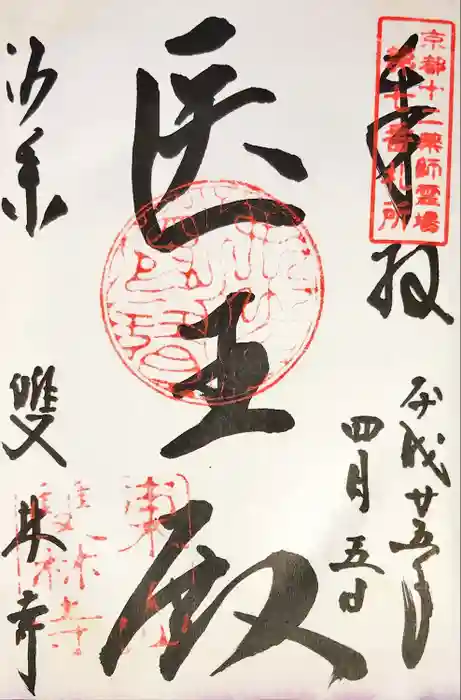 奉拝
京都十二薬師霊場
第七番札所
平成廿五年
四月五日
医王殿
東山
雙林寺
雙林寺